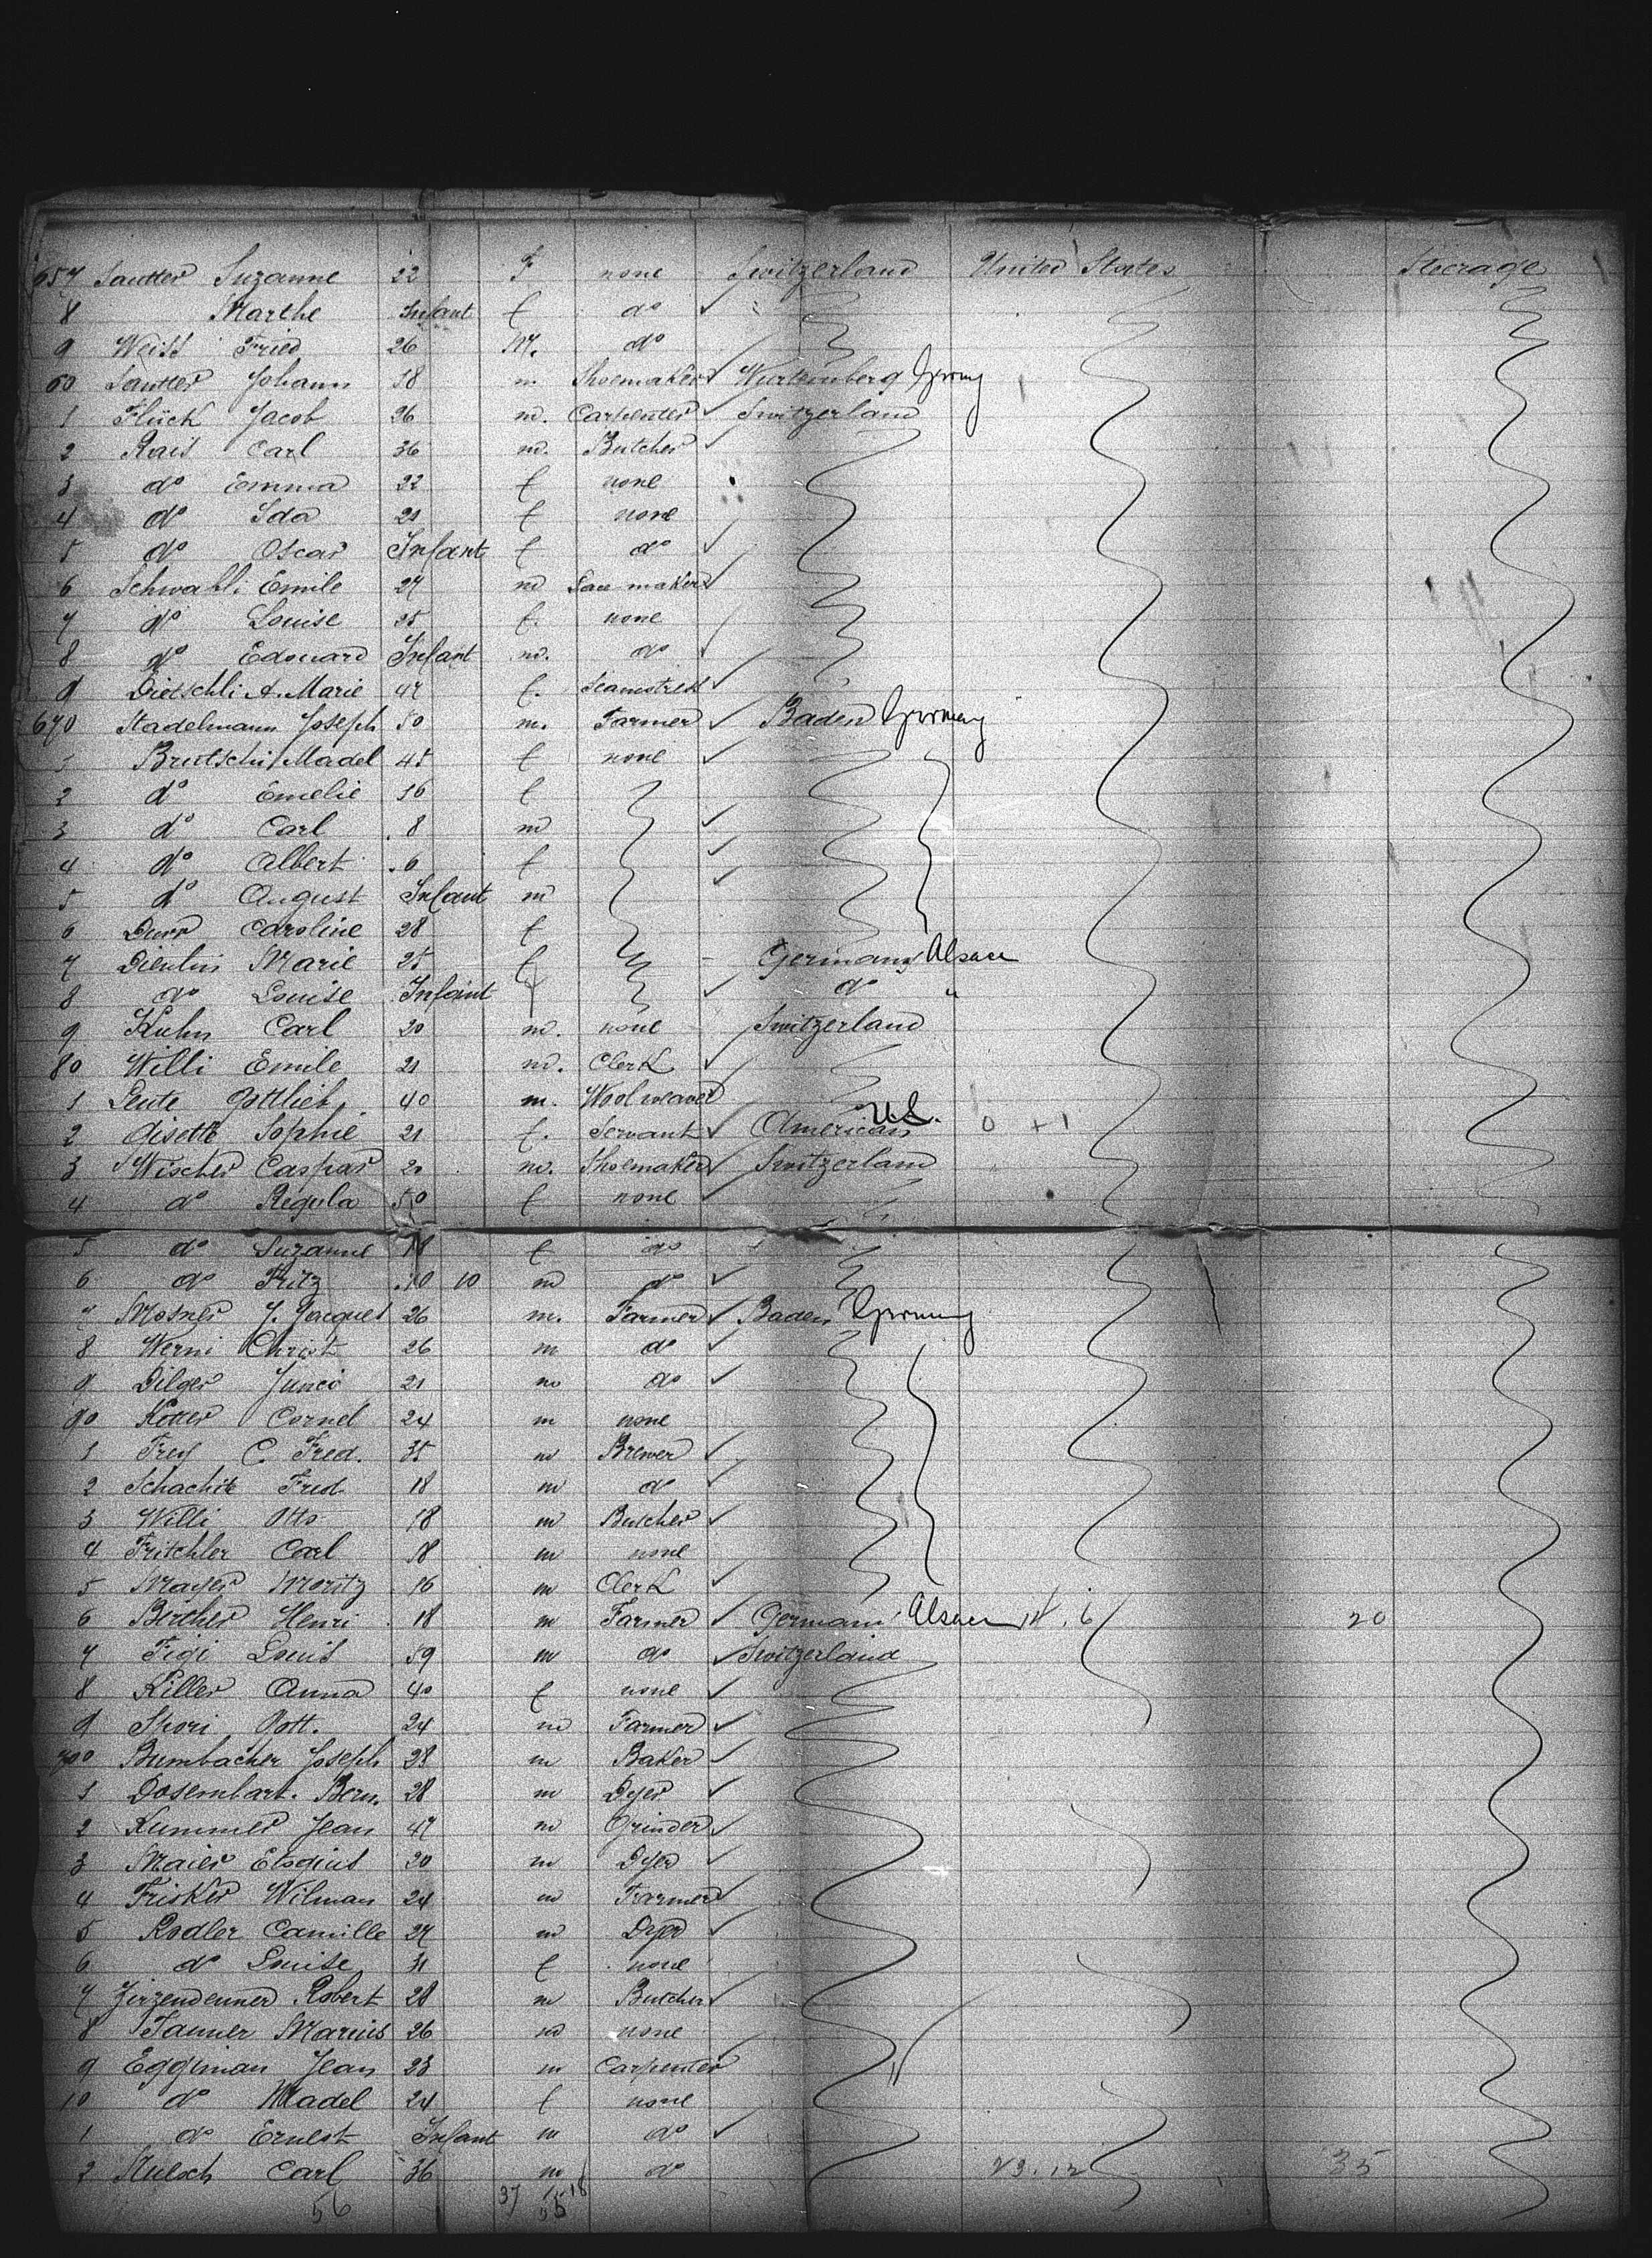 657 Sautter Suzanne 22 f none Switzerland United States Steerage
8 Marthe Infant f do
9 Weiss Fried 26 M. do
60 Sautter Johann 18 m Shoemaker Wurtemberg Germany
1 Flück Jacob 26 m. Carpenter Switzerland
2 Rais Carl 36 m. Butcher
3 do Emma 22 f none
4 do Ida 21 f none
5 do Oscar Infant f do
6 Schwahli Emile 27 m maker
7 do Louise 25 f. none
8 do Edouard Infant m. do
9 Dietschli A. Marie 47 f. Seamstress
670 Stadelmann Joseph 50 m. Farmer Baden Germany
1 Brutschi Madel 45 f none
2 do Emelie 16 f
3 do Carl 8 m
4 do Albert 6 f
5 do August Infant m
6 Durr Caroline 28 f
7 Marie 25 f Germany Alsace
8 do Louise Infant do "
9 Kuhn Carl 20 m. none Switzerland
80 Willi Emile 21 m. Clerk
1 Leute Gottlieb 40 m. Wool weaver
2 Sophie 21 f. Servant American U.S. 0 + 1
3 Wischer Caspar 20 m. Shoemaker Switzerland
4 do Regula 50 f none
5 do Suzanne 18 f do
6 do Fritz 10 10 m do
7 Mosner J. Jacques 26 m. Farmer Baden Germany
8 Werni Christ 26 m do
9 Dilger 21 m do
90 Kotter Cornel 24 m none
1 Frey C. Fred. 35 m Brewer
2 Fred 18 m do
3 Willi Otto 18 m Butcher
4 Fritchler Carl 18 m none
5 Mayer Moritz 16 m Clerk
6 Bircher Henri 18 m Farmer German Alsace 14.6 20
7 Figi Louis 59 m do Switzerland
8 Killer Anna 40 f none
9 Shori Gott. 24 m Farmer
700 Bumbacher Joseph 28 m Baker
1 Dosembart. Bern. 28 m Dyer
2 Kummer Jean 47 m Grinder
3 Maier 20 m Dyer
4 Frisker Wilman 24 m Farmer
5 Rodler Camille 27 m Dyer
6 do Louise 31 f none
7 Robert 28 m Butcher
8 Tanner Marius 26 m none
9 Eggiman Jean 23 m Carpenter
10 do Madel 24 f none
1 do Ernest Infant m do
2 Carl 36 m do 23.12 35
56 37 18